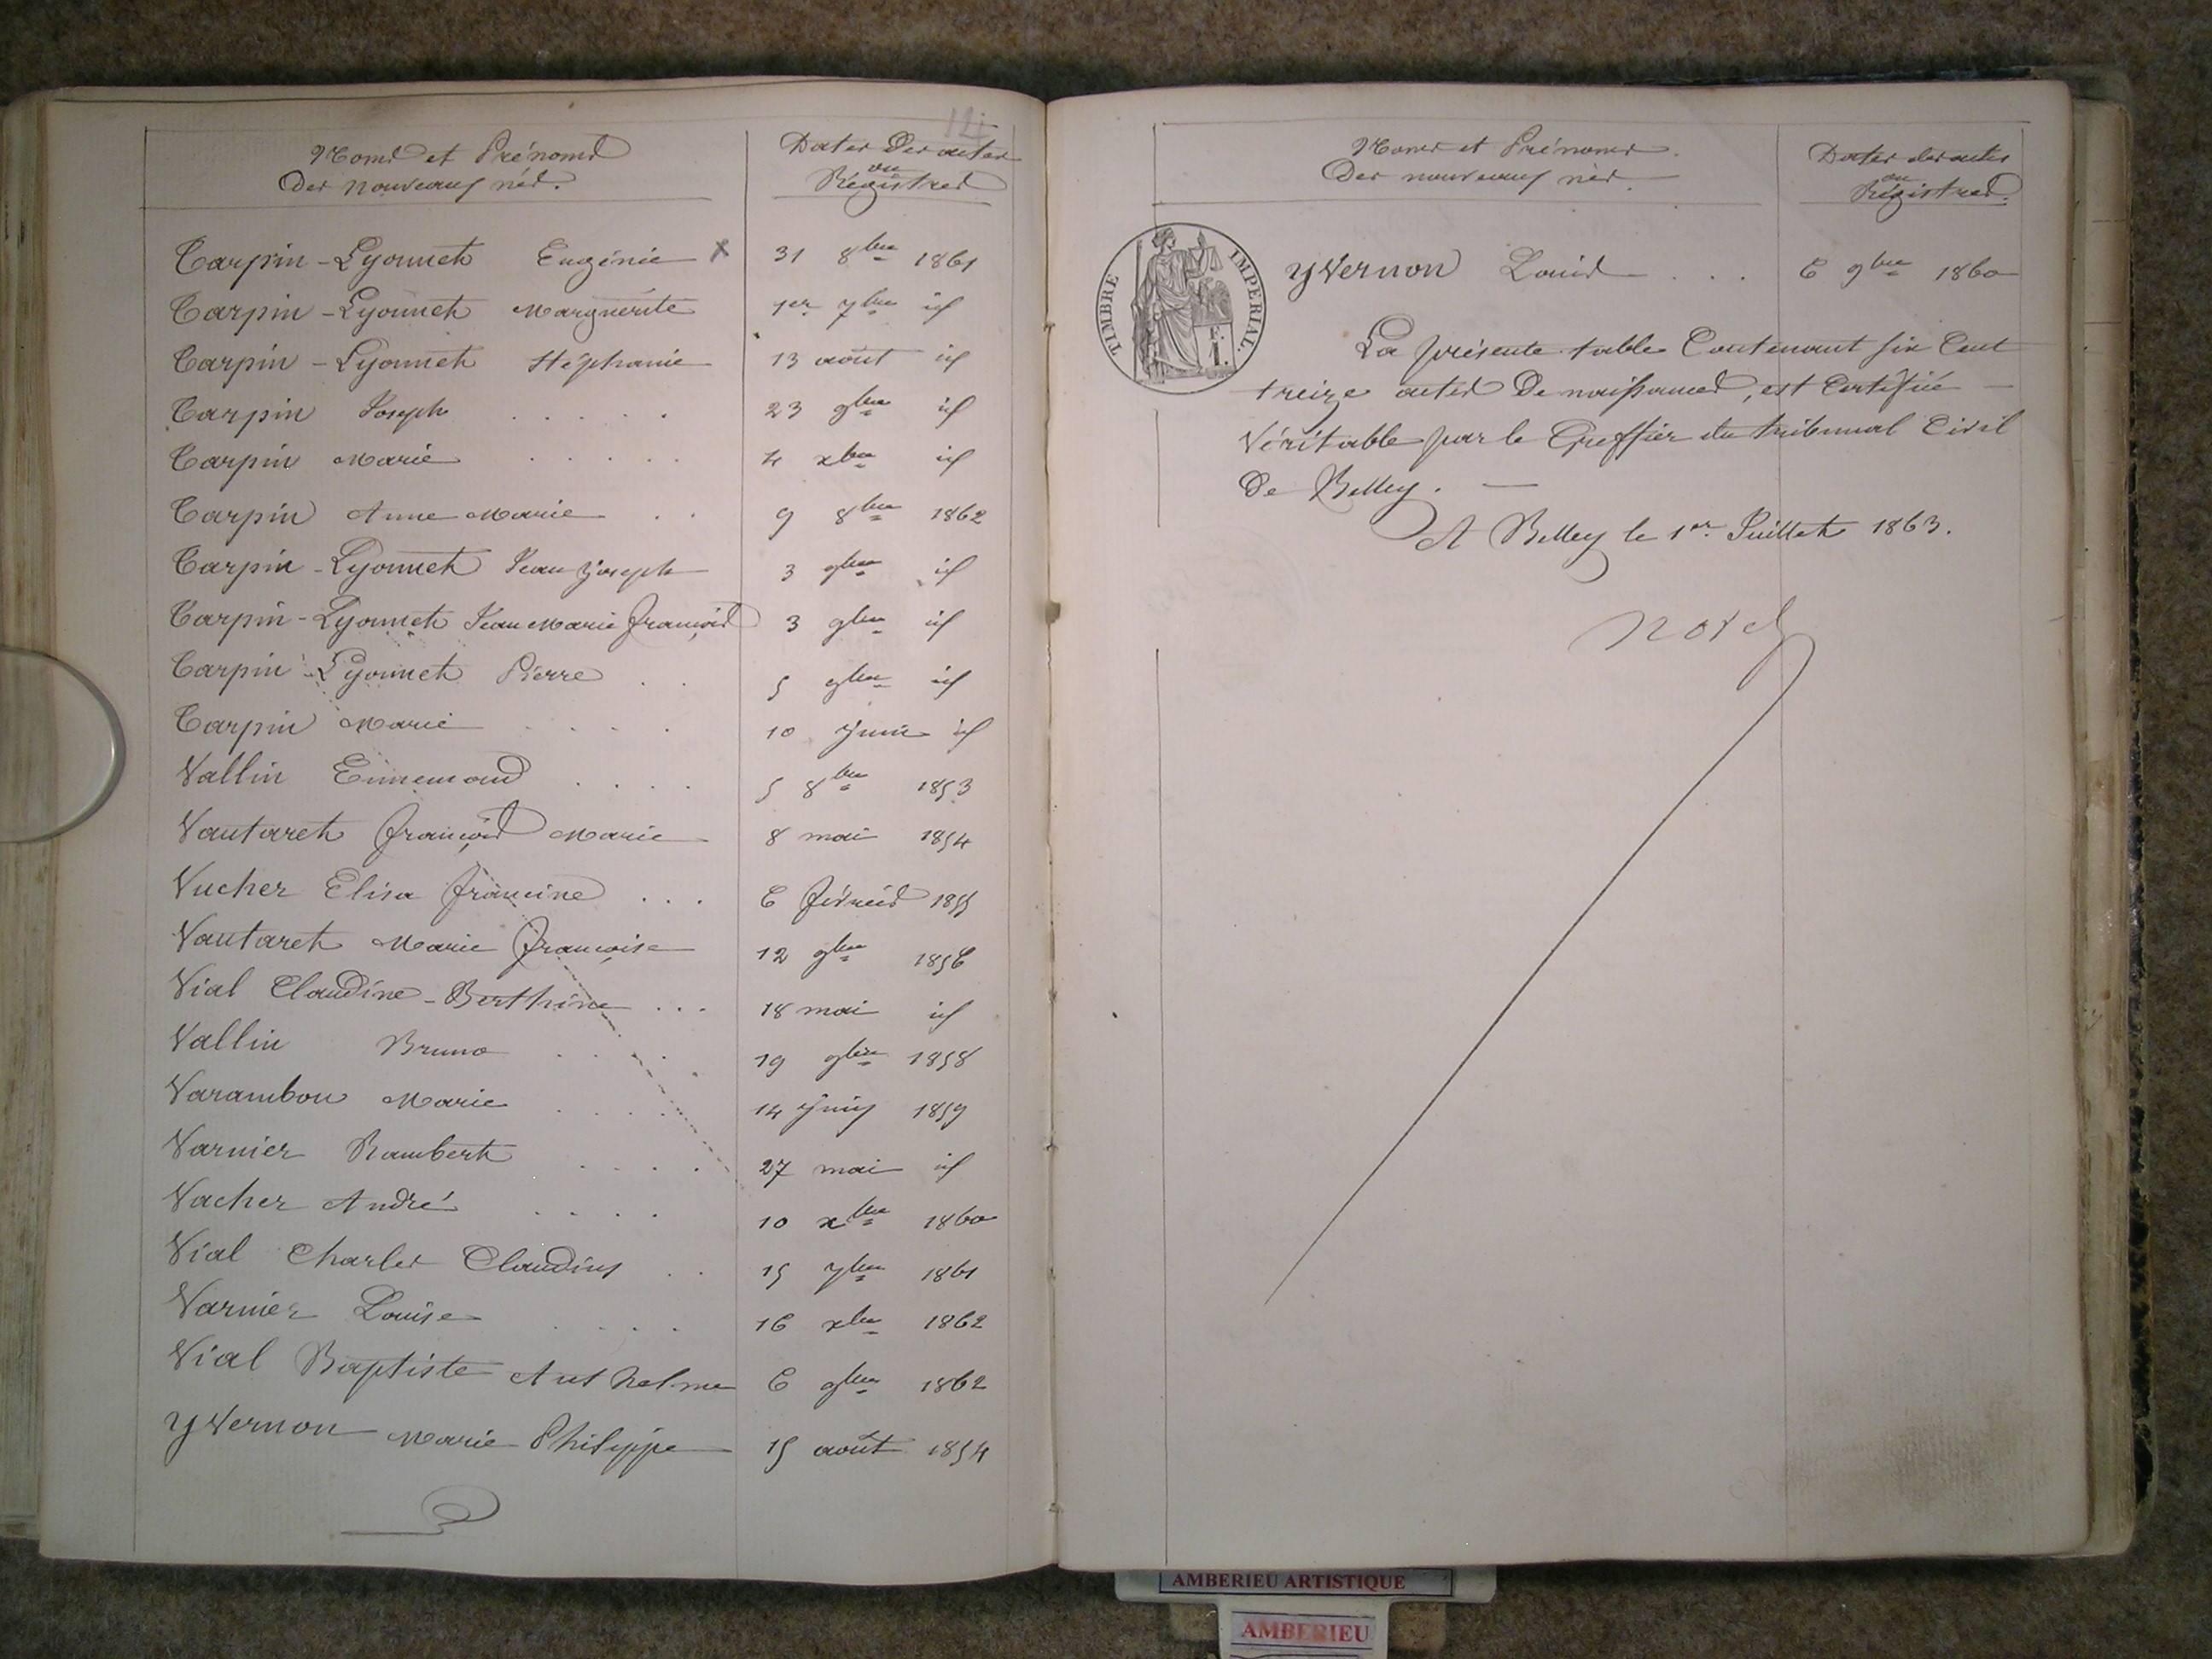 124
Noms et Prénoms
Des nouveaux nés.
Dates Des actes
ou
Régistres
Carpin-Lyonnet Eugénie x 31 8bre 1861
Carpin-Lyonnet Marguerite 1er 7bre id
Carpin-Lyonnet Stéphanie 13 août id
Carpin Joseph . . . . . 23 9bre id
Carpin Marie . . . . . 4 xbre id
Carpin Anne Marie . . 9 8bre 1862
Carpin-Lyonnet Jean Joseph 3 9bre id
Carpin-Lyonnet Jean Marie François 3 9bre id
Carpin-Lyonnet Pierre . . 5 9bre id
Carpin Marie . . . . 10 Juin id
Vallin Ennemond . . . . 5 8bre 1853
Vautaret François Marie 8 mai 1854
Vucher Elisa Francine . . . 6 février 1855
Vautaret Marie Françoise 12 9bre 1856
Vial Claudine-Berthine . . . 18 mai id
Vallin Bruno . . . . 19 9bre 1858
Varambon Marie . . . . 14 Juin 1859
Varnier Rambert . . . . 27 mai id
Vacher André . . . . 10 xbre 1860
Vial Charles Claudius . . 15 7bre 1861
Varnier Louise . . . . 16 xbre 1862
Vial Baptiste Anthelme 6 9bre 1862
Yvernon Marie Philippe 15 août 1854
Noms et Prénoms
Des nouveaux nés.
Dates des actes
ou
Régistres.
TIMBRE IMPERIAL.
Yvernon Louis . . . 6 9bre 1860
La présente table Contenant six Cent
treize actes De naissances, est Certifiée
Véritable par le Greffier du tribunal Civil
De Belley.
A Belley le 1er Juillet 1863.
AMBERIEU ARTISTIQUE
AMBERIEU